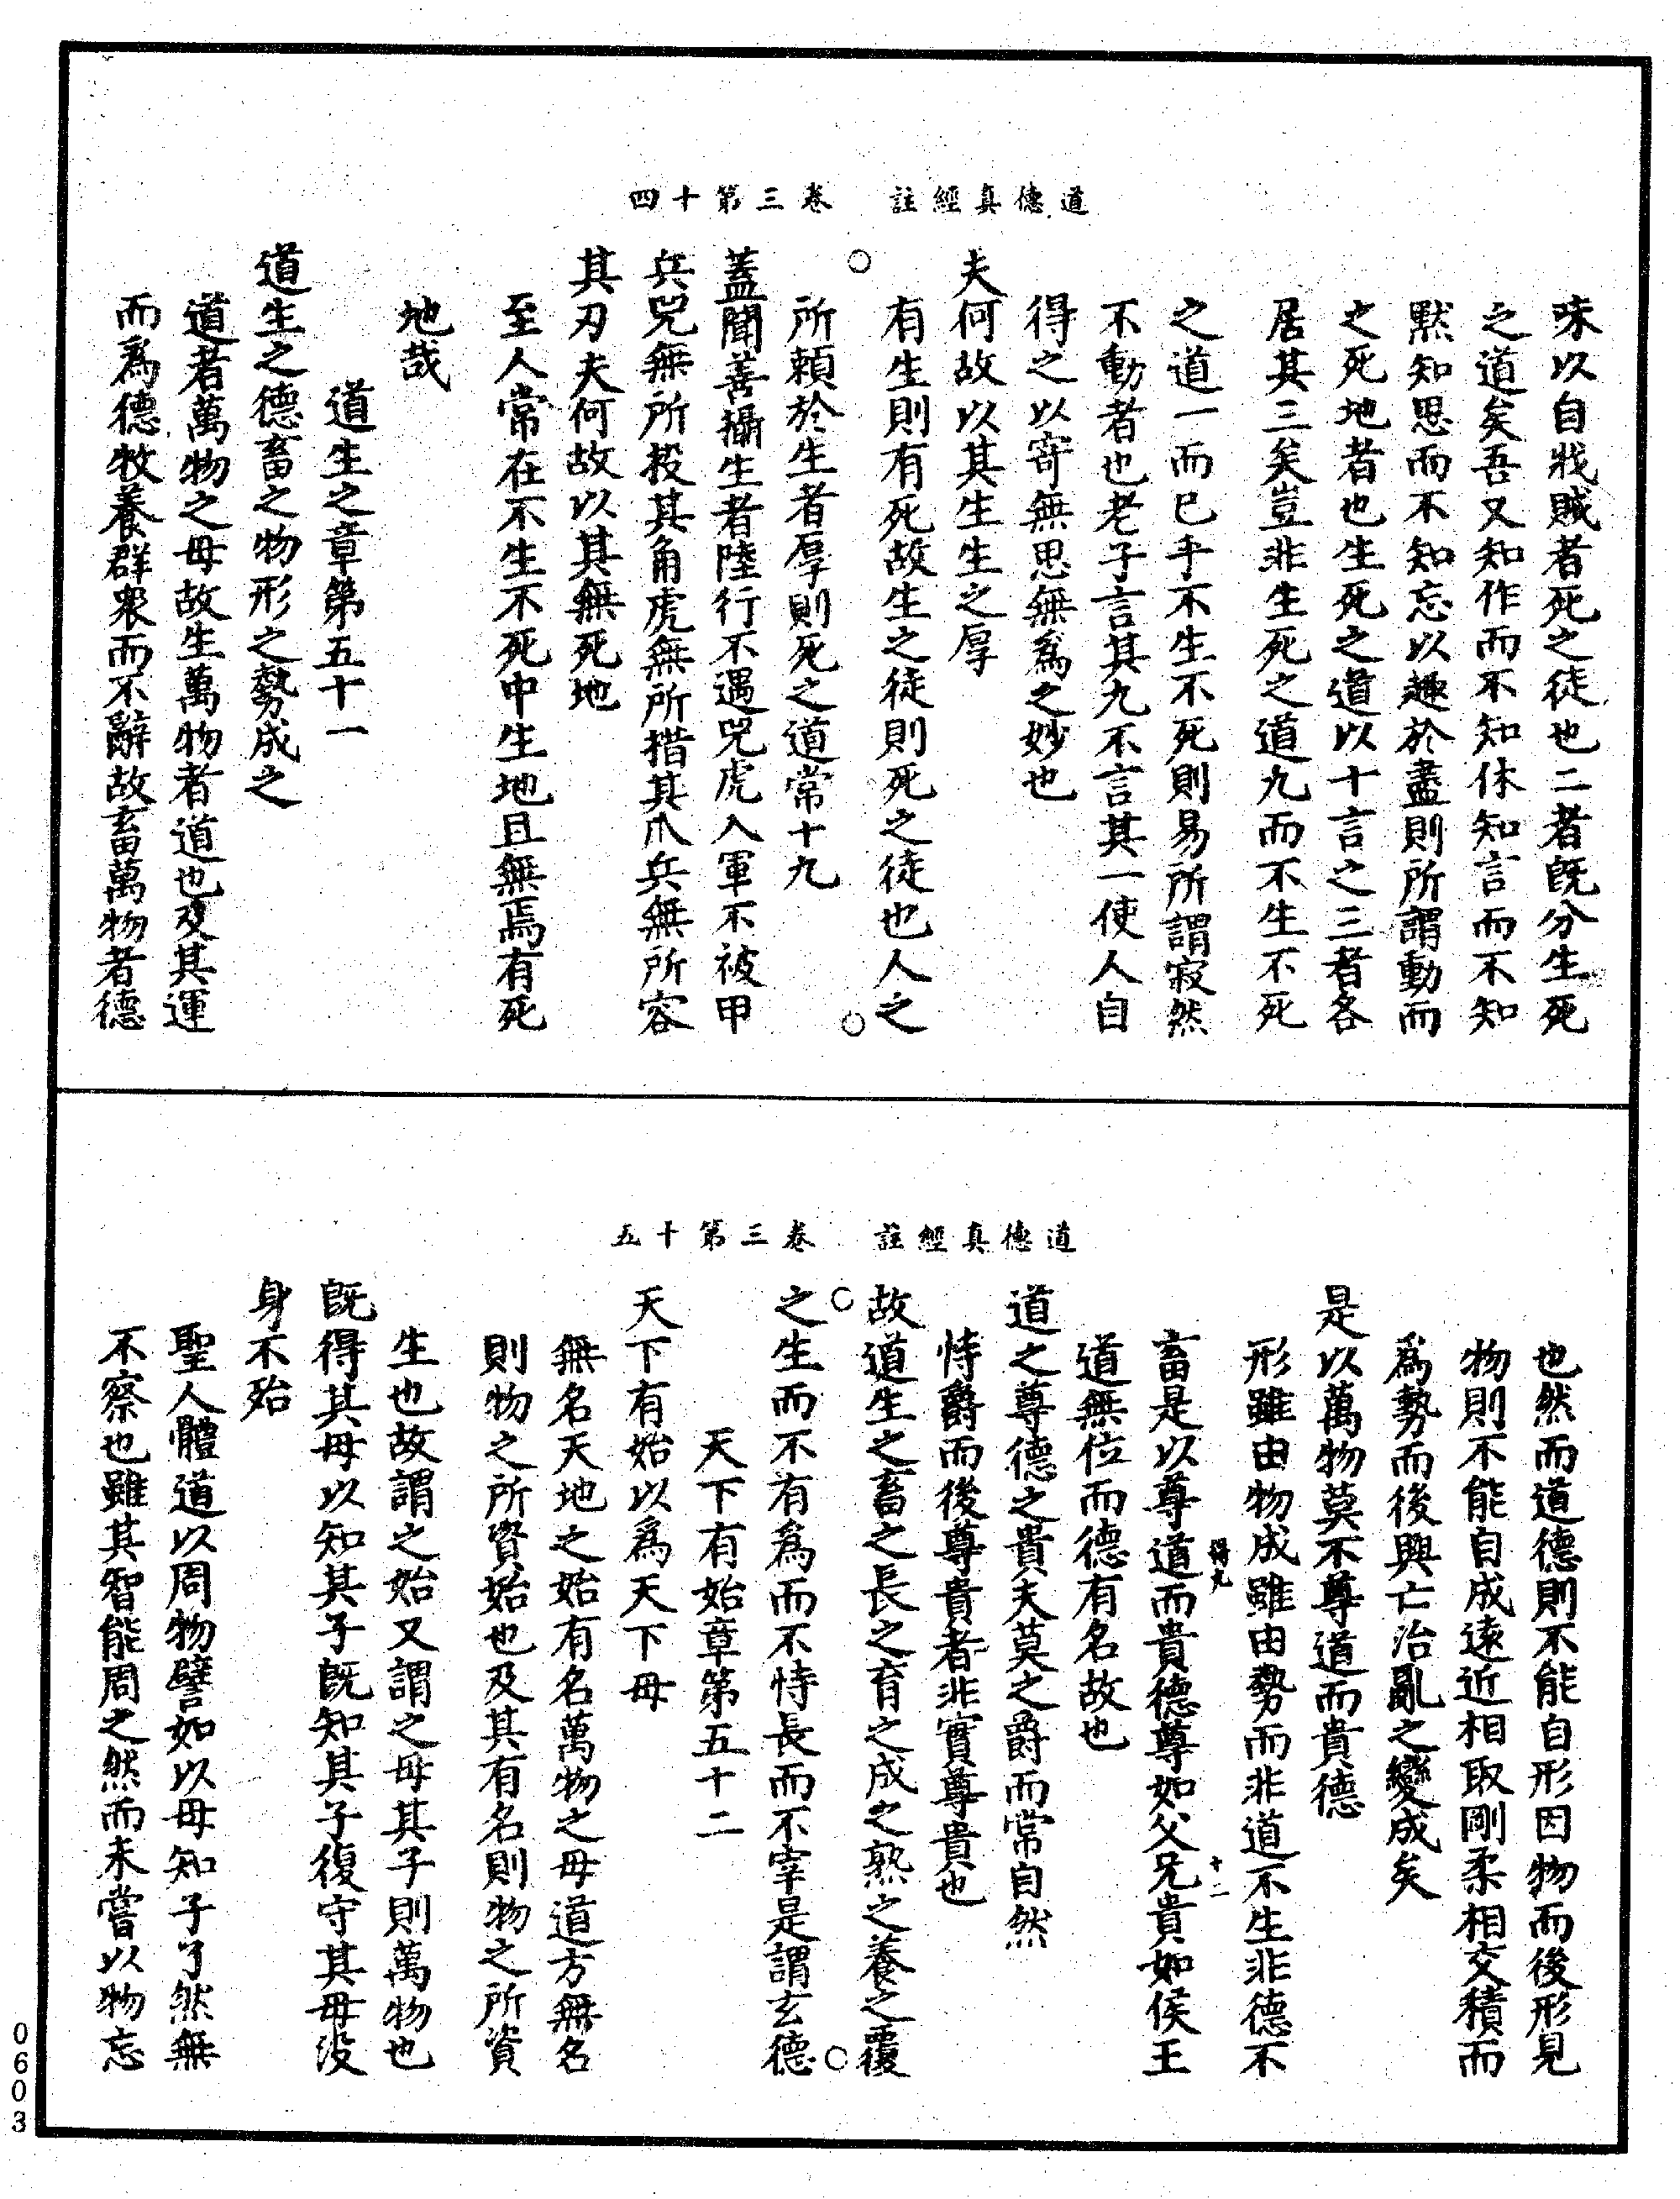 道德真經註　卷三第十四
味以自戕賊者死之徒也二者旣分生死
之道矣吾又知作而不知休知言而不知
默知思而不知忘以趣於盡則所謂動而
之死地者也生死之道以十言之三者各
居其三矣豈非生死之道九而不生不死
之道一而已乎不生不死則易所謂寂然
不動者也老子言其九不言其一使人自
得之以寄無思無爲之妙也
夫何故以其生生之厚
有生則有死故生之徒則死之徒也人之
所賴於生者厚則死之道常十九
蓋聞善攝生者陸行不遇兕虎入軍不被甲
兵兕無所投其角虎無所措其爪兵無所容
其刃夫何故以其無死地
至人常在不生不死中生地且無焉有死
地哉
道生之章第五十一
道生之德畜之物形之勢成之
道者萬物之母故生萬物者道也及其運
而爲德牧養群衆而不辭故畜萬物者德
道德真經註　卷三第十五
也然而道德則不能自形因物而後形見
物則不能自成遠近相取剛柔相交積而
爲勢而後興亡治亂之變成矣
是以萬物莫不尊道而貴德
形雖由物成雖由勢而非道不生非德不
畜是以尊道而貴德尊如父兄貴如侯王
道無位而德有名故也
道之尊德之貴夫莫之爵而常自然
恃爵而後尊貴者非實尊貴也
故道生之畜之長之育之成之熟之養之覆
之生而不有爲而不恃長而不宰是謂玄德
天下有始章第五十二
天下有始以爲天下母
無名天地之始有名萬物之母道方無名
則物之所資始也及其有名則物之所資
生也故謂之始又謂之母其子則萬物也
旣得其母以知其子旣知其子復守其母没
身不殆
聖人體道以周物譬如以母知子了然無
不察也雖其智能周之然而未嘗以物忘
十二
0603